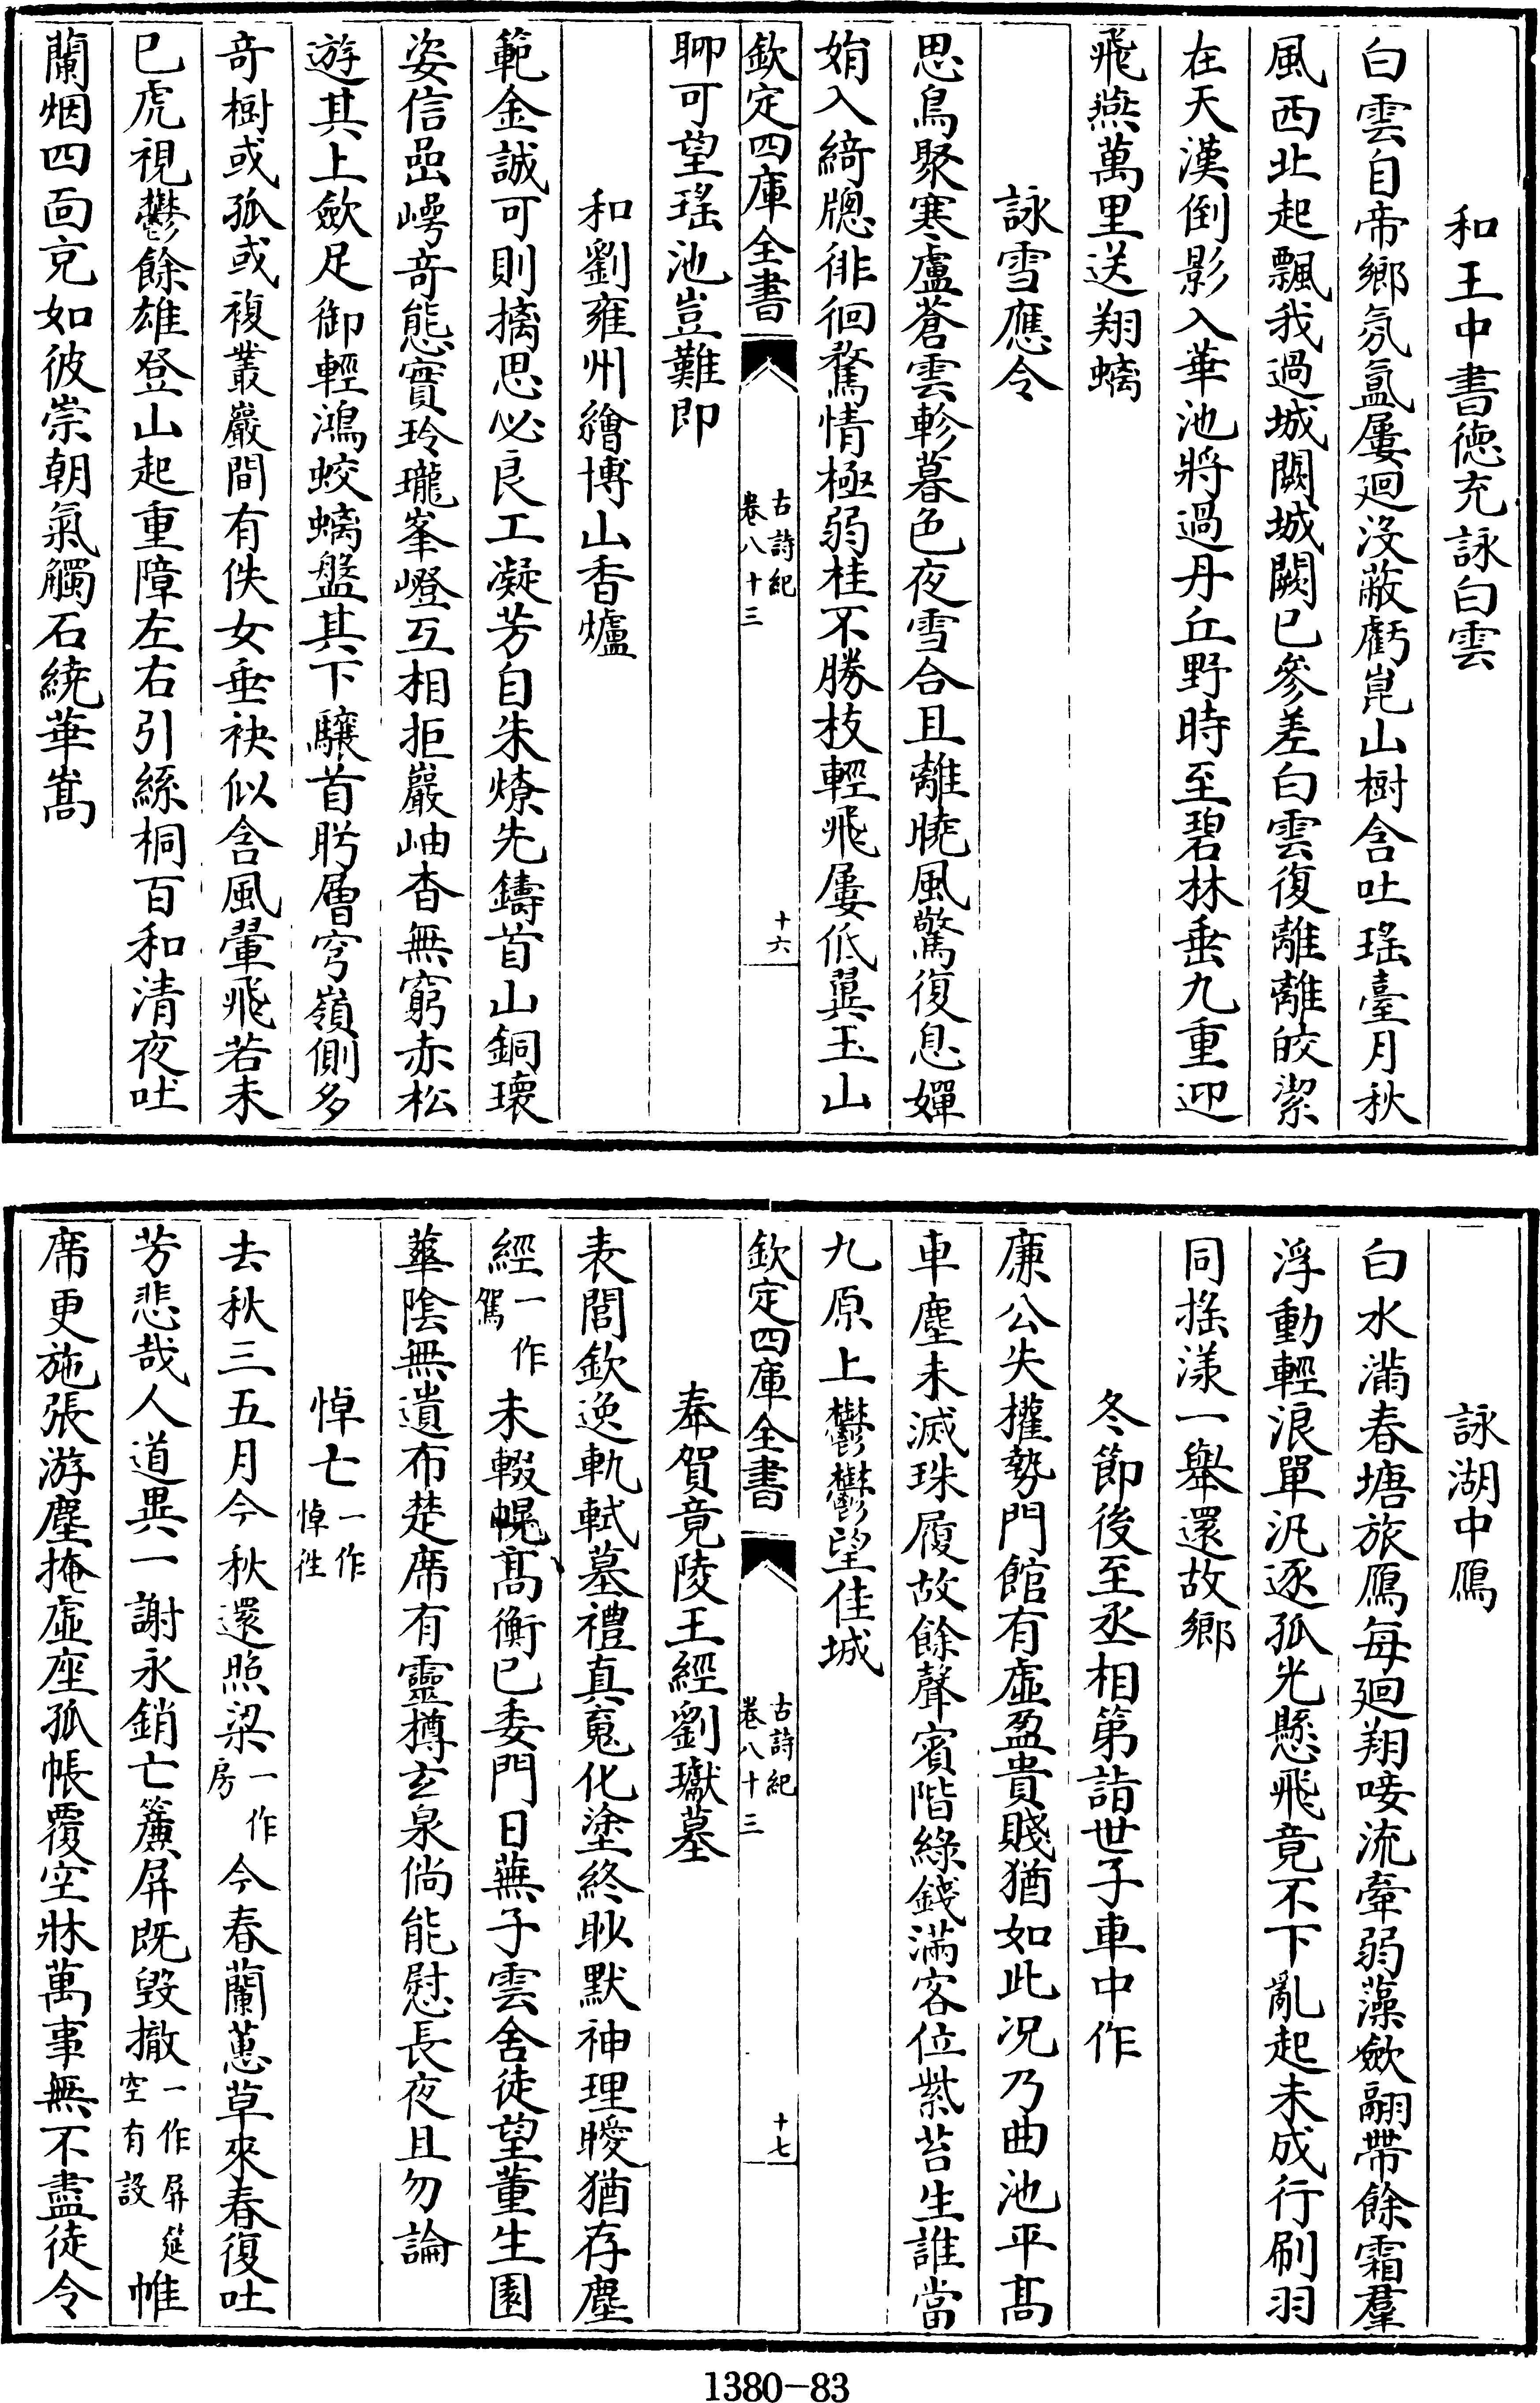 和王中書德充詠白雲
白雲自帝鄉氛氳屢廻沒蔽虧崑山樹含吐瑤臺月秋
風西北起飄我過城闕城闕已參差白雲復離離皎潔
在天漢倒影入華池將過丹丘野時至碧林垂九重迎
飛燕萬里送翔螭
詠雪應令
思鳥聚寒盧蒼雲軫暮色夜雪合且離曉風驚復息嬋
娟入綺牕徘徊騖情極弱桂不勝枝輕飛屢低翼玉山
欽定四庫全書
古詩紀
卷八十三
十六
聊可望瑤池豈難即
和劉雍州繪博山香爐
範金誠可則摛思必良工凝芳自朱燎先鑄首山銅瓌
姿信嵒崿奇態實玲瓏峯嶝互相拒巖岫杳無窮赤松
遊其上歛足御輕鴻蛟螭盤其下驤首盻層穹嶺側多
奇樹或孤或複叢巖間有佚女垂袂似含風翬飛若未
已虎視鬱餘雄登山起重障左右引絲桐百和清夜吐
蘭烟四面充如彼崇朝氣觸石繞華嵩
詠湖中鴈
白水滿春塘旅鴈每廻翔唼流牽弱藻歛翮帶餘霜羣
浮動輕浪單汎逐孤光懸飛竟不下亂起未成行刷羽
同搖漾一舉還故鄉
冬節後至丞相第詣世子車中作
廉公失權勢門館有虛盈貴賤猶如此况乃曲池平髙
車塵未滅珠履故餘聲賓階綠錢滿客位紫苔生誰當
九原上鬱鬱望佳城
欽定四庫全書
古詩紀
卷八十三
十七
奉賀竟陵王經劉瓛墓
表閭欽逸軌軾墓禮真䰟化塗終眇默神理曖猶存塵
經一作駕未輟幌髙衡已委門日蕪子雲舍徒望董生園
華隂無遺布楚席有靈樽玄泉倘能慰長夜且勿論
悼亡一作悼往
去秋三五月今秋還照梁一作房今春蘭蕙草來春復吐
芳悲哉人道異一謝永銷亡簾屏既毀撤一作屏筵空有設帷
席更施張游塵掩虛座孤帳覆空牀萬事無不盡徒令
1380-83